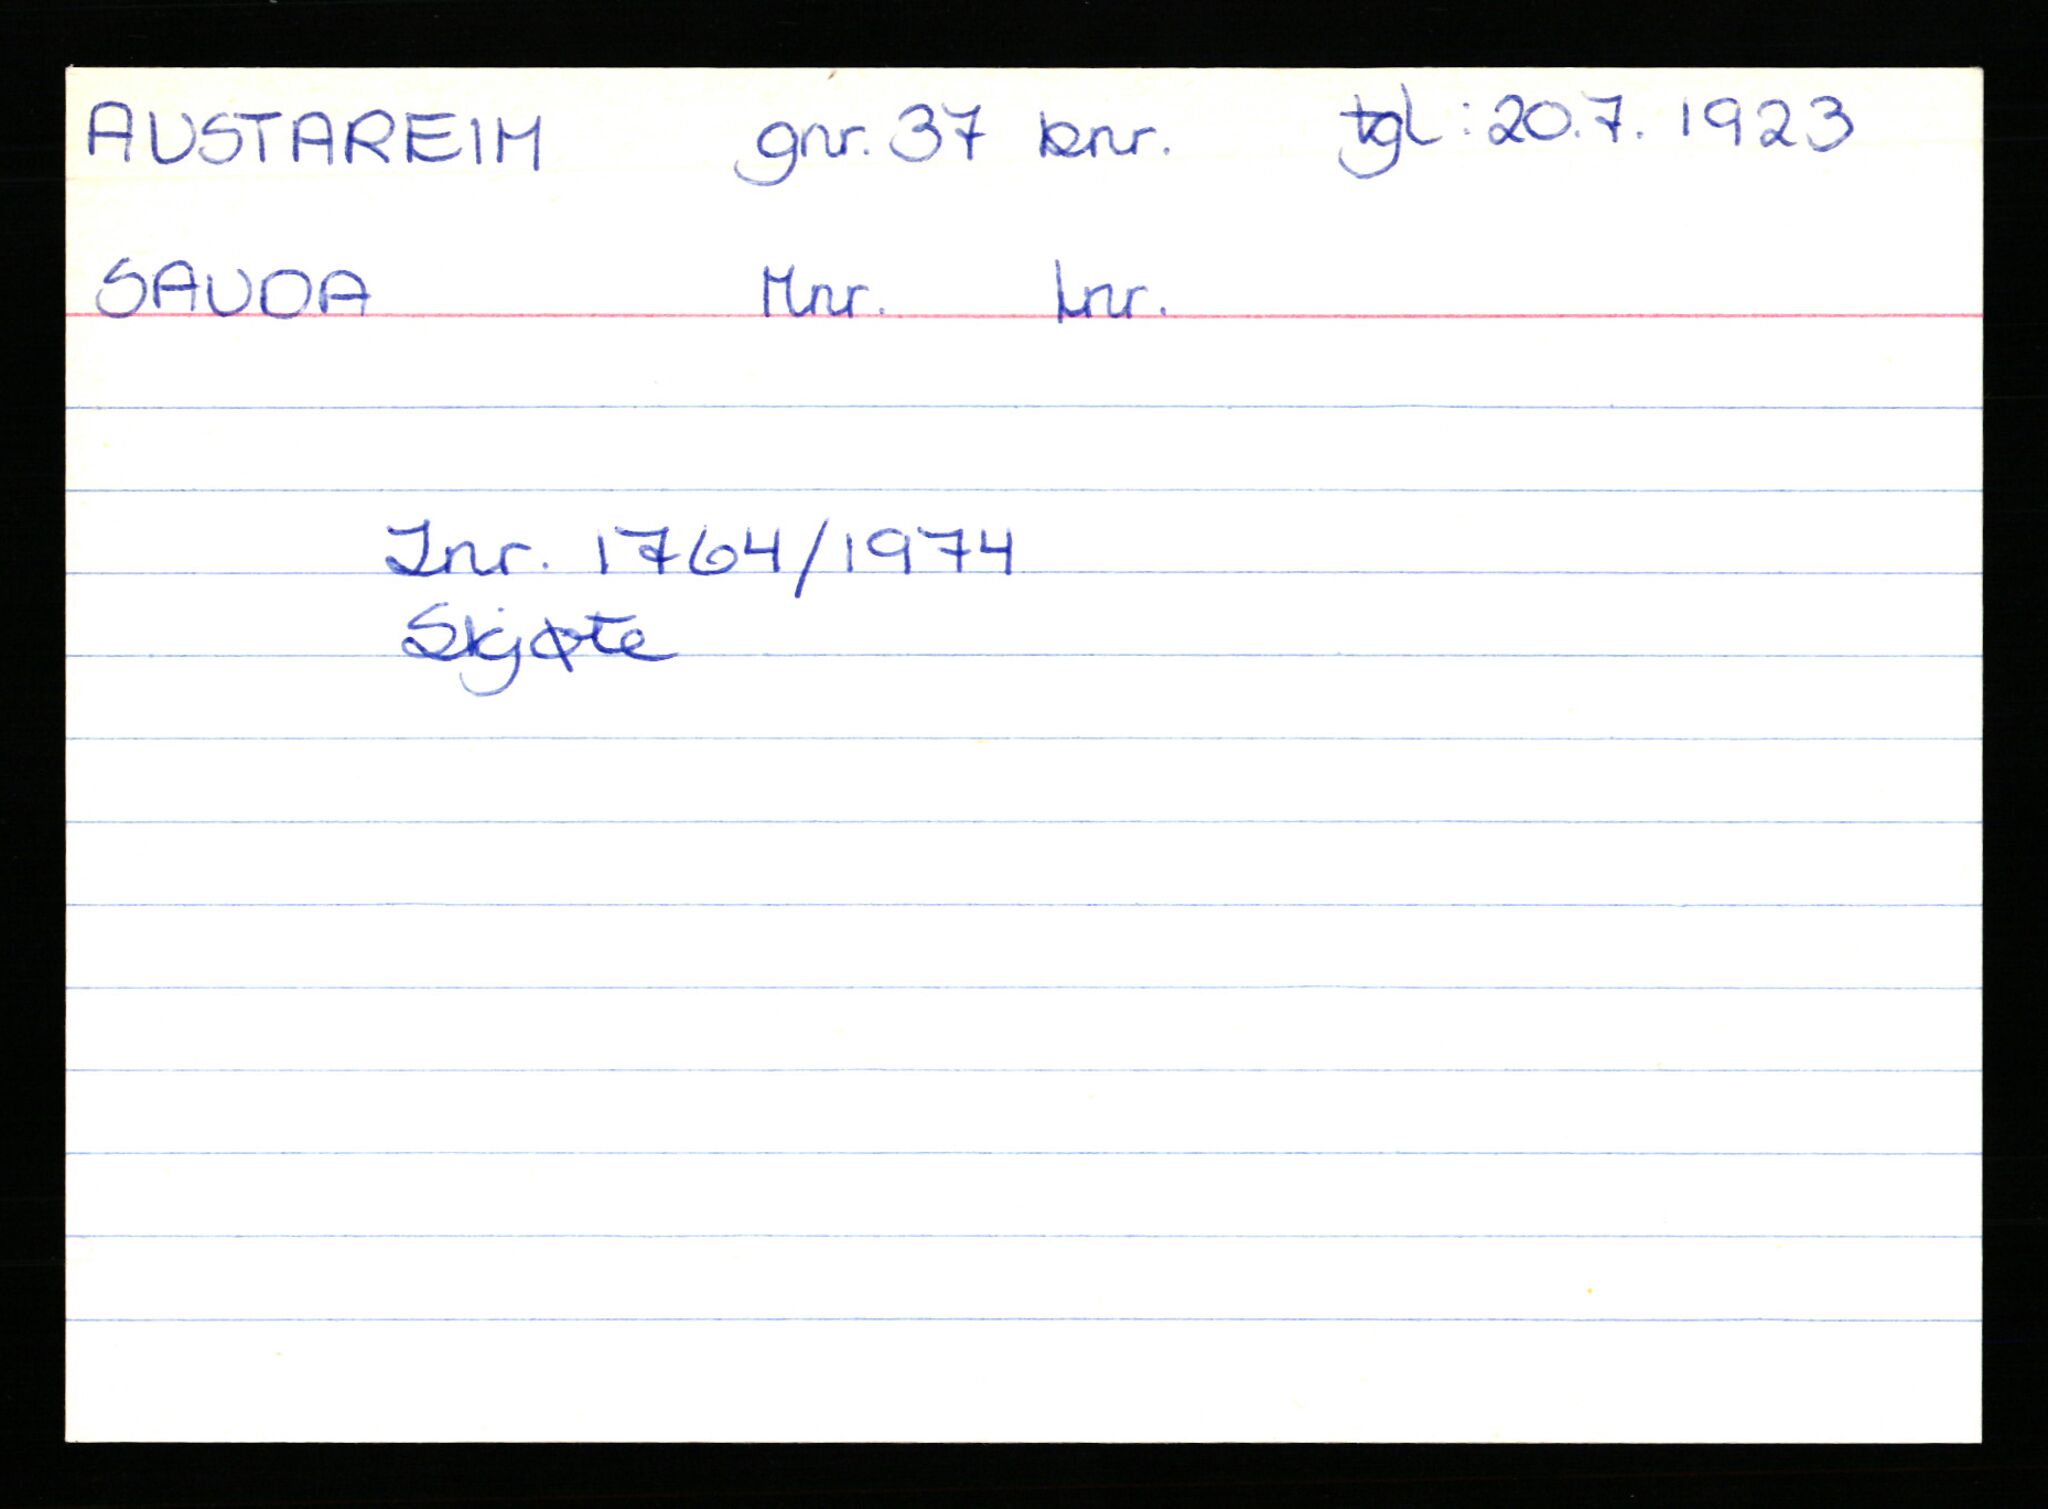 AUSTAREIM gnr. 37 bnr. tgl: 20.7. 1923
SAUDA Mnr. Lnr.
Jnr. 1764/1974
Skjøte